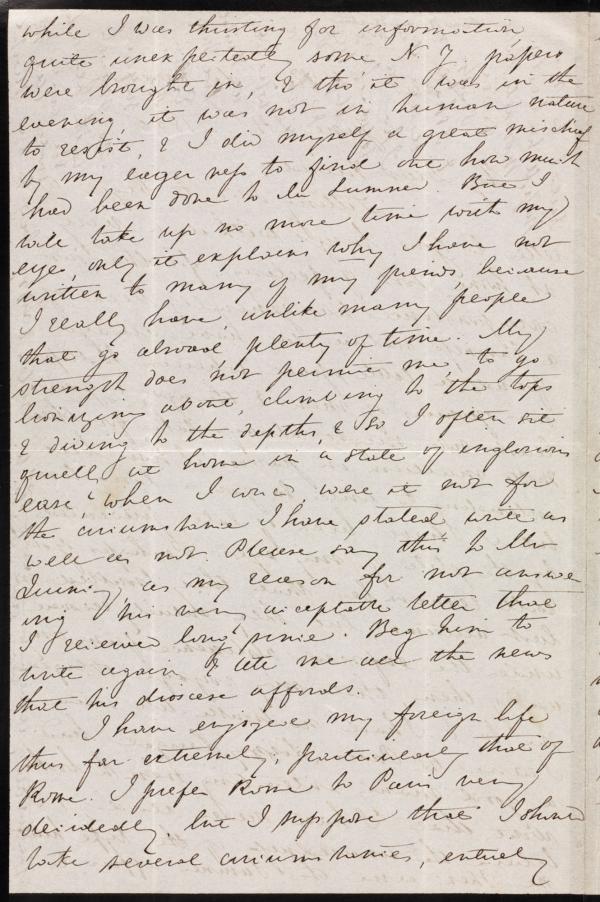 while I was thirsting for information,
quite unexpectedly some N. Y. papers
were brought in, & tho' it was in the
evening it was not in human nature
to resist, & I did myself a great mischief
by my eagerness to find out how much
had been done to Mr Sumner. But I
will take up no more time with my
eyes, only it explains why I have not
written to many of my friends, because
I really have, unlike many people
that go abroad, plenty of time. My
strength does not permit me, to go
lionizing about, climbing to the tops
& diving to the depths, & so I often sit
quietly at home in a state of inglorious
ease, when I could, were it not for
the circumstance I have stated write as
well as not. Please say this to Mr
as my reason for not answer
ing his very acceptable letter that
I received long since. Beg him to
write again & tell me all the news
that his diocese affords.
I have enjoyed my foreign life
thus far extremely, particularly that of
Rome. I prefer Rome to Paris very
decidedly, but I suppose that I should
take several circumstances, entirely